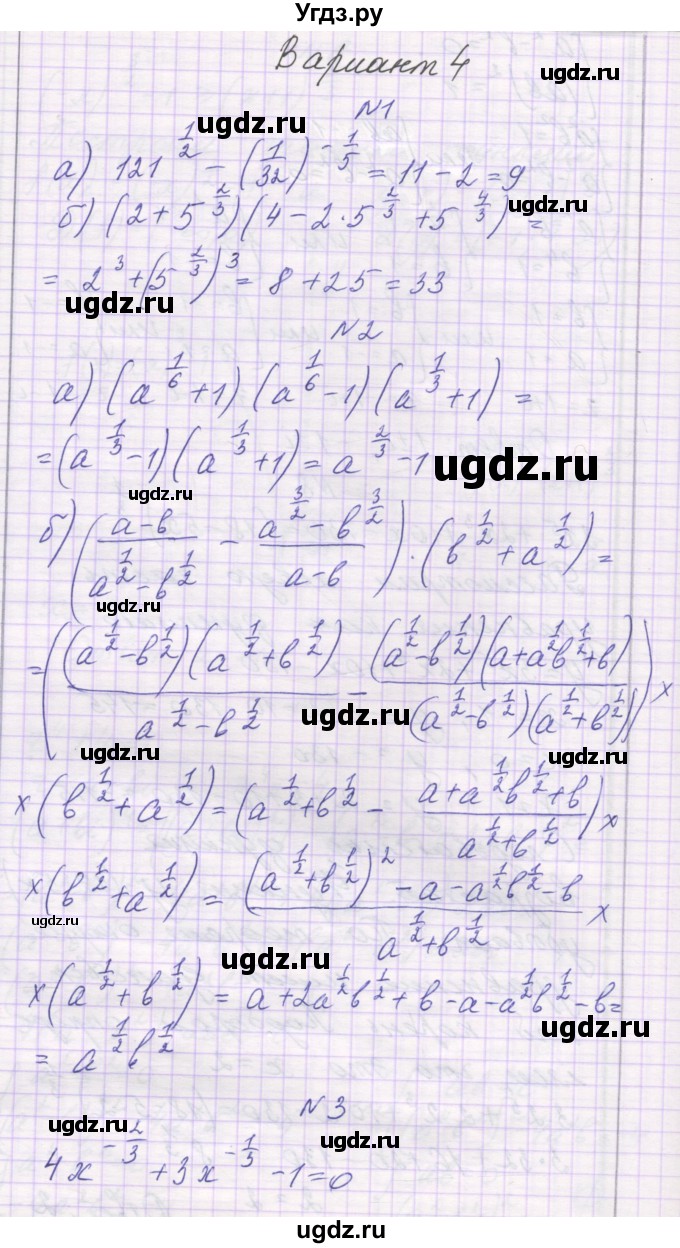 Угдз.ру
Вариант 4
ugdz.ru
№1
ugdz.ru
а) 121^(1/2) - (1/32)^(-1/5) = 11 - 2 = 9
б) (2 + 5^(2/3))(4 - 2·5^(2/3) + 5^(4/3)) =
ugdz.ru
= 2^3 + (5^(2/3))^3 = 8 + 25 = 33
ugdz.ru
№2
а) (a^(1/6) + 1)(a^(1/6) - 1)(a^(1/3) + 1) =
= (a^(1/3) - 1)(a^(1/3) + 1) = a^(2/3) - 1
ugdz.ru
ugdz.ru
б) ((a-b)/(a^(1/2) - b^(1/2)) - (a^(3/2) - b^(3/2))/(a-b)) · (b^(1/2) + a^(1/2)) =
ugdz.ru
= ((a^(1/2) - b^(1/2))(a^(1/2) + b^(1/2))/(a^(1/2) - b^(1/2)) - (a^(1/2) - b^(1/2))(a + a^(1/2)b^(1/2) + b)/((a^(1/2) - b^(1/2))(a^(1/2) + b^(1/2)))) x
ugdz.ru
ugdz.ru
x (b^(1/2) + a^(1/2)) = (a^(1/2) + b^(1/2) - (a + a^(1/2)b^(1/2) + b)/(a^(1/2) + b^(1/2))) x
x (b^(1/2) + a^(1/2)) = ((a^(1/2) + b^(1/2))^2 - a - a^(1/2)b^(1/2) - b)/(a^(1/2) + b^(1/2)) x
ugdz.ru
ugdz.ru
x (a^(1/2) + b^(1/2)) = a + 2a^(1/2)b^(1/2) + b - a - a^(1/2)b^(1/2) - b =
ugdz.ru
= a^(1/2)b^(1/2)
№3
ugdz.ru
ugdz.ru
4x^(-2/3) + 3x^(-1/3) - 1 = 0
ugdz.ru